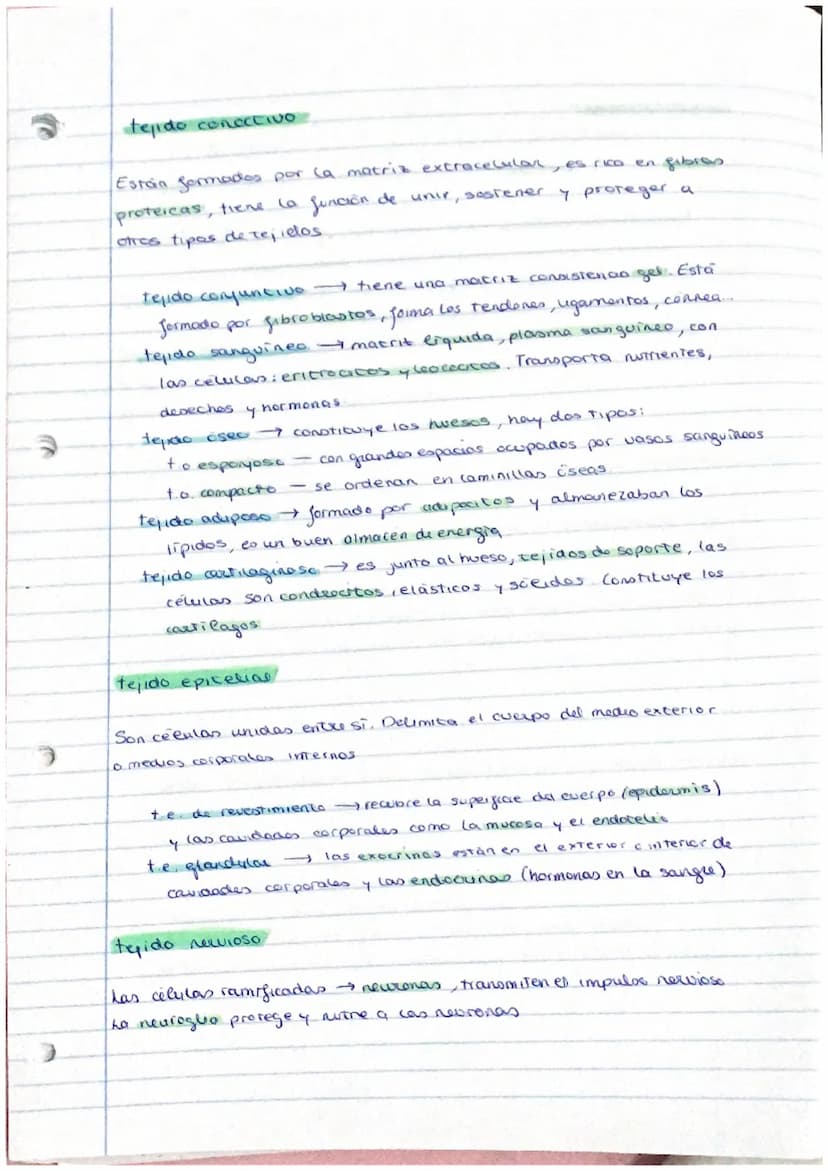 tejido conectivo
Están formados por la matriz extracelular, es rico en fibras
proteicas, tiene la función de unir, sostener y proteger a
otros tipos de tejidos
tejido conjuntivo → tiene una matriz consistencia gel. Está
formado por fibroblastos, forma los tendones, ligamentos, córnea...
tejido sanguíneo → matriz líquida, plasma sanguíneo, con
las células: eritrocitos y leococitos. Transporta nutrientes,
desechos y hormonas
tejido óseo → constituye los huesos, hay dos tipos:
t.o esponjoso — con grandes espacios ocupados por vasos sanguíneos
t.o. compacto — se ordenan en laminillas óseas
tejido adiposo → formado por adipocitos y almanezaban los
lípidos, es un buen almacén de energía
tejido cartilaginoso → es junto al hueso, tejidos de soporte, las
células son condrocitos, elásticos y sólidos. Constituye los
cartílagos
tejido epitelial
Son células unidas entre sí. Delimita el cuerpo del medio exterior
o medios corporales internos
t.e. de revestimiento → recubre la superficie del cuerpo (epidermis)
y las cavidades corporales como la mucosa y el endotelio
t.e. glandular → las exocrinas están en el exterior o interior de
cavidades corporales y las endocrinas (hormonas en la sangre)
tejido nervioso
Las células ramificadas → neuronas, transmiten el impulso nervioso
La neuroglia protege y nutre a las neuronas